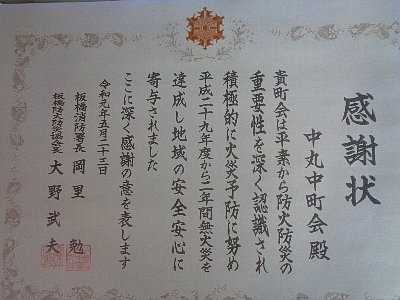 感謝状
中丸中町会殿
貴町会は平素から防火防災の
重要性を深く認識され
積極的に火災予防に努め
平成二十九年度から二年間無火災を
達成し地域の安全安心に
寄与されました
ここに深く感謝の意を表します
令和元年五月二十三日
板橋消防署長 岡里 勉
板橋防火防災協会長 大野武夫